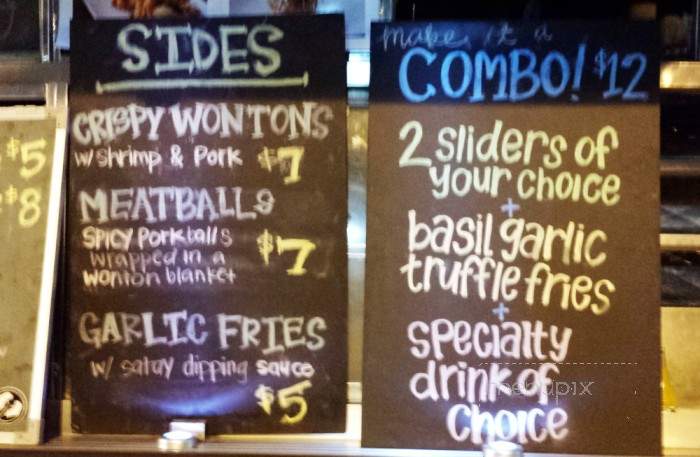 $5
$8
SIDES
CRISPY WONTONS
w/ shrimp & Pork $7
MEATBALLS
SPICY Porkballs
wrapped in a
wonton blanket
$7
GARLIC FRIES
w/ satay dipping sauce
$5
make it a
COMBO! $12
2 sliders of
your choice
+
basil garlic
truffle fries
+
specialty
drink of
choice